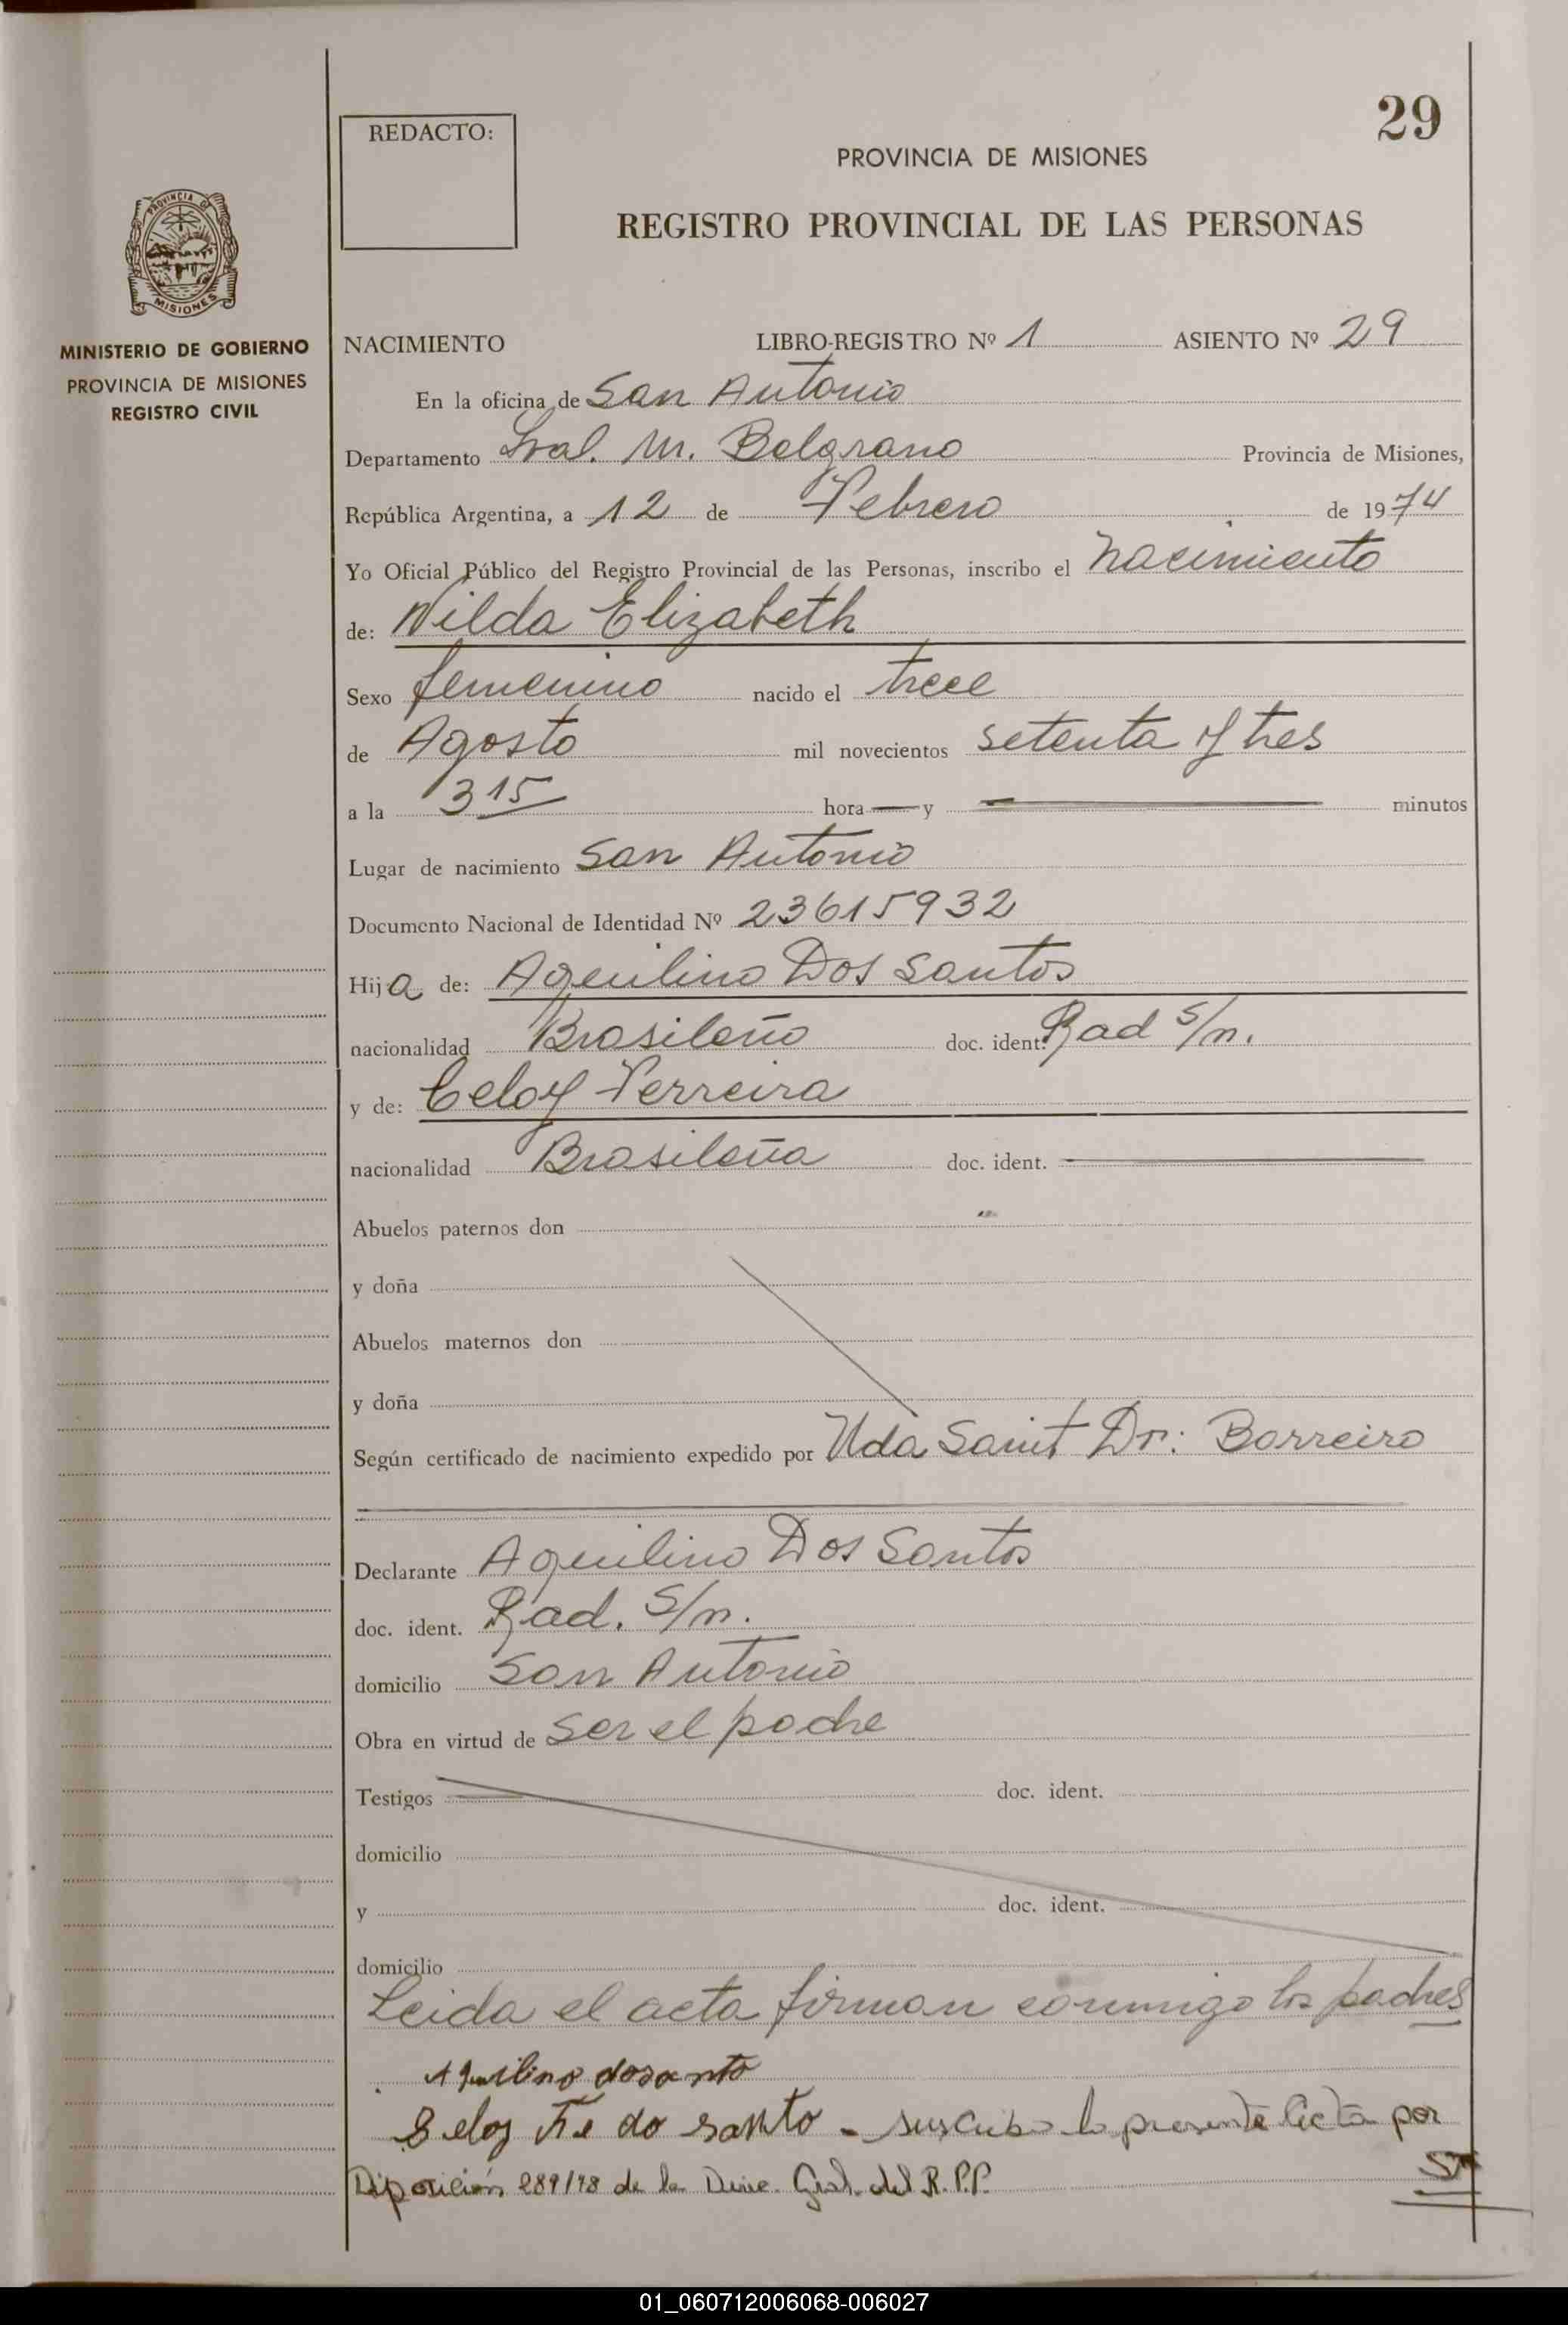 29
REDACTO:
PROVINCIA DE MISIONES
REGISTRO PROVINCIAL DE LAS PERSONAS
PROVINCIA DE
MISIONES
MINISTERIO DE GOBIERNO
PROVINCIA DE MISIONES
REGISTRO CIVIL
NACIMIENTO LIBRO-REGISTRO Nº 1 ASIENTO Nº 29
En la oficina de San Antonio
Departamento Gral. M. Belgrano Provincia de Misiones,
República Argentina, a 12 de Febrero de 1974
Yo Oficial Público del Registro Provincial de las Personas, inscribo el nacimiento
de: Nilda Elizabeth
Sexo femenino nacido el trece
de Agosto mil novecientos setenta y tres
a la 3 15 hora — y — minutos
Lugar de nacimiento San Antonio
Documento Nacional de Identidad Nº 23615932
Hija de: Aquilino Dos Santos
nacionalidad Brasileño doc. ident. Rad s/n.
y de: Celoy Ferreira
nacionalidad Brasileña doc. ident. —
Abuelos paternos don
y doña
Abuelos maternos don
y doña
Según certificado de nacimiento expedido por Uda Sanit Dr: Borreiro
Declarante Aquilino Dos Santos
doc. ident. Rad. S/n.
domicilio San Antonio
Obra en virtud de ser el padre
Testigos doc. ident.
domicilio
y doc. ident.
domicilio
Leida el acta firman conmigo los padres
Aquilino dosanto
Seloy Fe do santo - suscribo la presente Acta por
Diposición 289/98 de la Direc. Gral. del R.P.P.
01_060712006068-006027